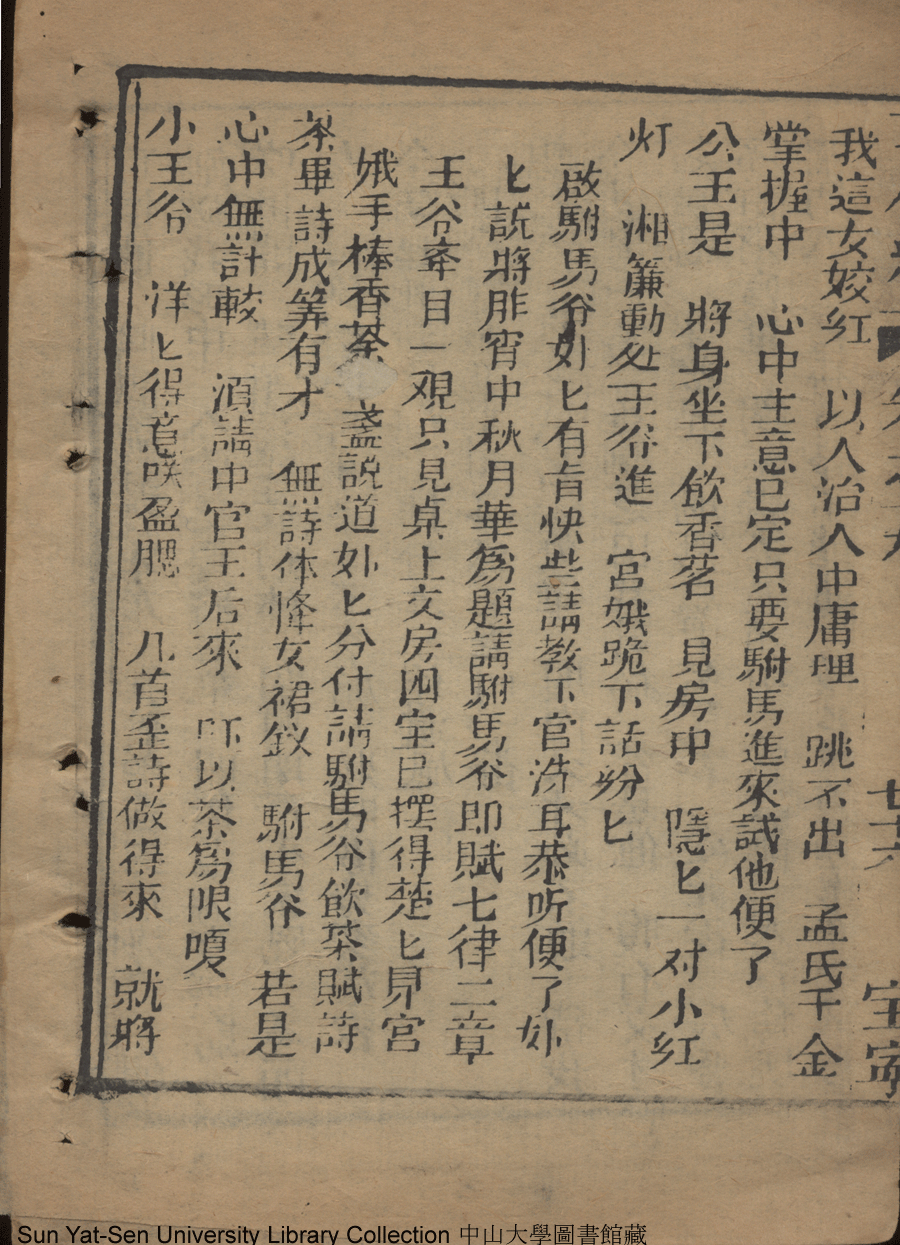 七十六
我這女姣红 以人治人中庸理 跳不出 孟氏千金
掌握中 心中主意已定只要駙馬進來試他便了
公王是 將身坐下飲香茗 見房中 隱匕一对小红
灯 湘簾動处王谷進 宮娥跪下話紛匕
啟駙馬谷奶匕有旨快些請教下官洗耳恭听便了奶
匕說將昨宵中秋月華為題請駙馬谷即賦七律二章
王谷牽目一观只見桌上文房四宝已摆得楚匕見宮
娥手棒香茶 盞説道奶匕分付請駙馬谷飲茶賦詩
茶畢詩成筭有才 無詩体怪女裙釵 駙馬谷 若是
心中無計較 湏請中官王后來 吓以茶為限嗄
小王谷 洋匕得意咲盈腮 几首歪詩做得來 就將
Sun Yat-Sen University Library Collection 中山大學圖書館藏